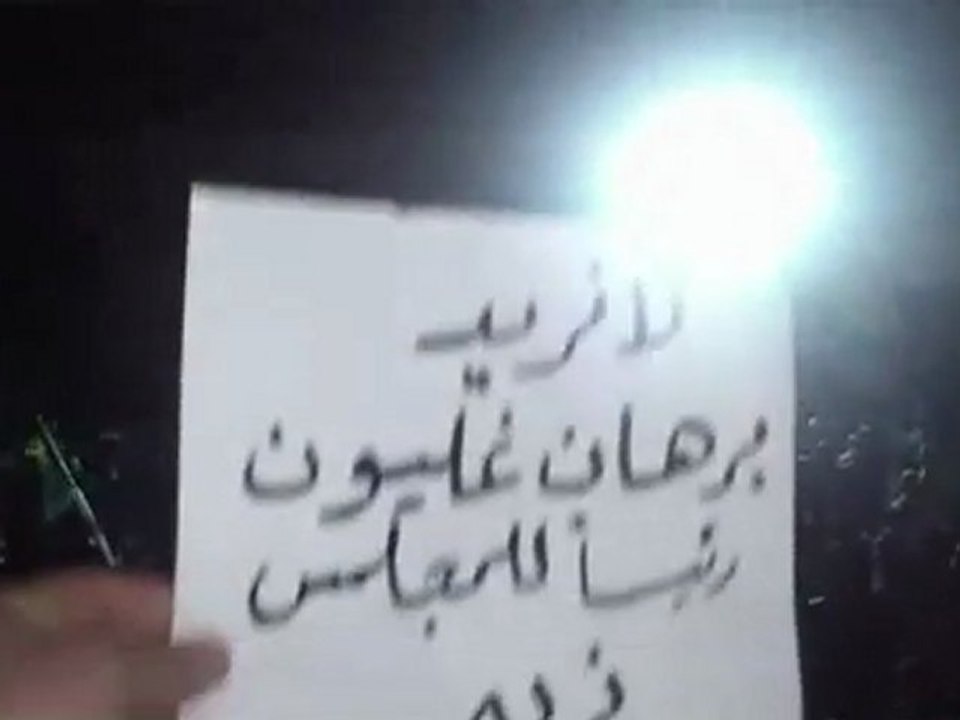 لا نريد
برهان غليون
رئيسأ للمجلس